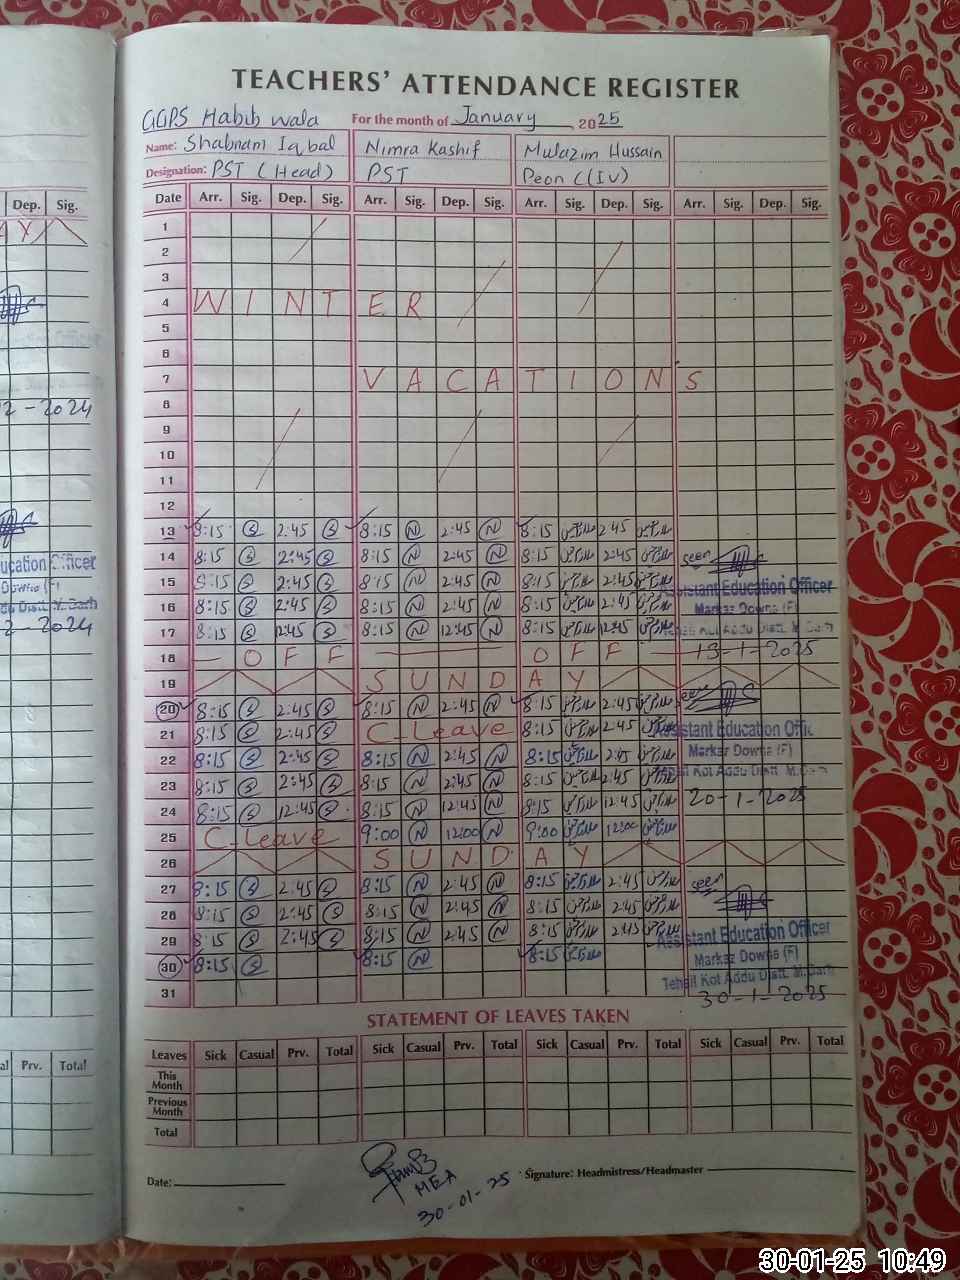 TEACHERS' ATTENDANCE REGISTER
GGPS Habib wala For the month of January 2025
Name: Shabnam Iqbal Nimra Kashif Mulazim Hussain
Designation: PST (Head) PST Peon C(IV)
Dep. Sig.
Date Arr. Sig. Dep. Sig. Arr. Sig. Dep. Sig. Arr. Sig. Dep. Sig. Arr. Sig. Dep. Sig.
1
2
3
4 WINTER
5
6
7 VACATIONS
8
2-2024
9
10
11
12
13 8:15 S 2:45 S 8:15 N 2:45 N 8:15 2:45
14 8:15 S 2:45 S 8:15 N 2:45 N 8:15 2:45 seen
15 8:15 S 2:45 S 8:15 N 2:45 N 8:15 2:45 Assistant Education Officer
16 8:15 S 2:45 S 8:15 N 2:45 N 8:15 2:45 Markaz Downa (F)
17 8:15 S 12:45 S 8:15 N 12:45 N 8:15 12:45 Tehsil Kot Addu Distt. M.Garh
ucation Officer
2-2024
18 OFF OFF 13-1-2025
19 SUNDAY
20 8:15 S 2:45 S 8:15 N 2:45 N 8:15 2:45 seen
21 8:15 S 2:45 S C Leave 8:15 2:45 Assistant Education Offic
22 8:15 S 2:45 S 8:15 N 2:45 N 8:15 2:45 Markaz Downa (F)
23 8:15 S 2:45 S 8:15 N 2:45 N 8:15 2:45 Tehsil Kot Addu Distt. M.Garh
24 8:15 S 12:45 S 8:15 N 12:45 N 8:15 12:45 20-1-2025
25 C.Leave 9:00 N 12:00 N 9:00 12:00
26 SUNDAY
27 8:15 S 2:45 S 8:15 N 2:45 N 8:15 2:45 seen
28 8:15 S 2:45 S 8:15 N 2:45 N 8:15 2:45
29 8:15 S 2:45 S 8:15 N 2:45 N 8:15 2:45 Assistant Education Officer
30 8:15 S 8:15 N 8:15 Markaz Downa (F)
Tehsil Kot Addu Distt. M.Garh
31 30-1-2025
STATEMENT OF LEAVES TAKEN
Leaves Sick Casual Prv. Total Sick Casual Prv. Total Sick Casual Prv. Total Sick Casual Prv. Total
al Prv. Total
This Month
Previous Month
Total
Date: Signature: Headmistress/Headmaster
MEA
30-01-25
30-01-25 10:49